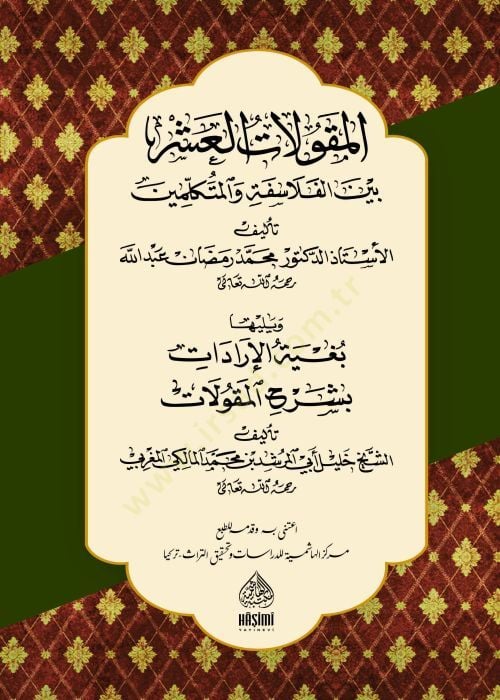 المقولات العشر
بين الفلاسفة والمتكلمين
تأليف
الأستاذ الدكتور محمد رمضان عبد الله
رحمه الله تعالى
ويليها
بغية الإرادات
بشرح المقولات
تأليف
الشيخ خليل أبي المرشد بن محمد المالكي المغربي
رحمه الله تعالى
اعتنى به وقدمه للطبع
مركز الهاشمية للدراسات وتحقيق التراث - تركيا
HÂŞİMİ
YAYINEVİ